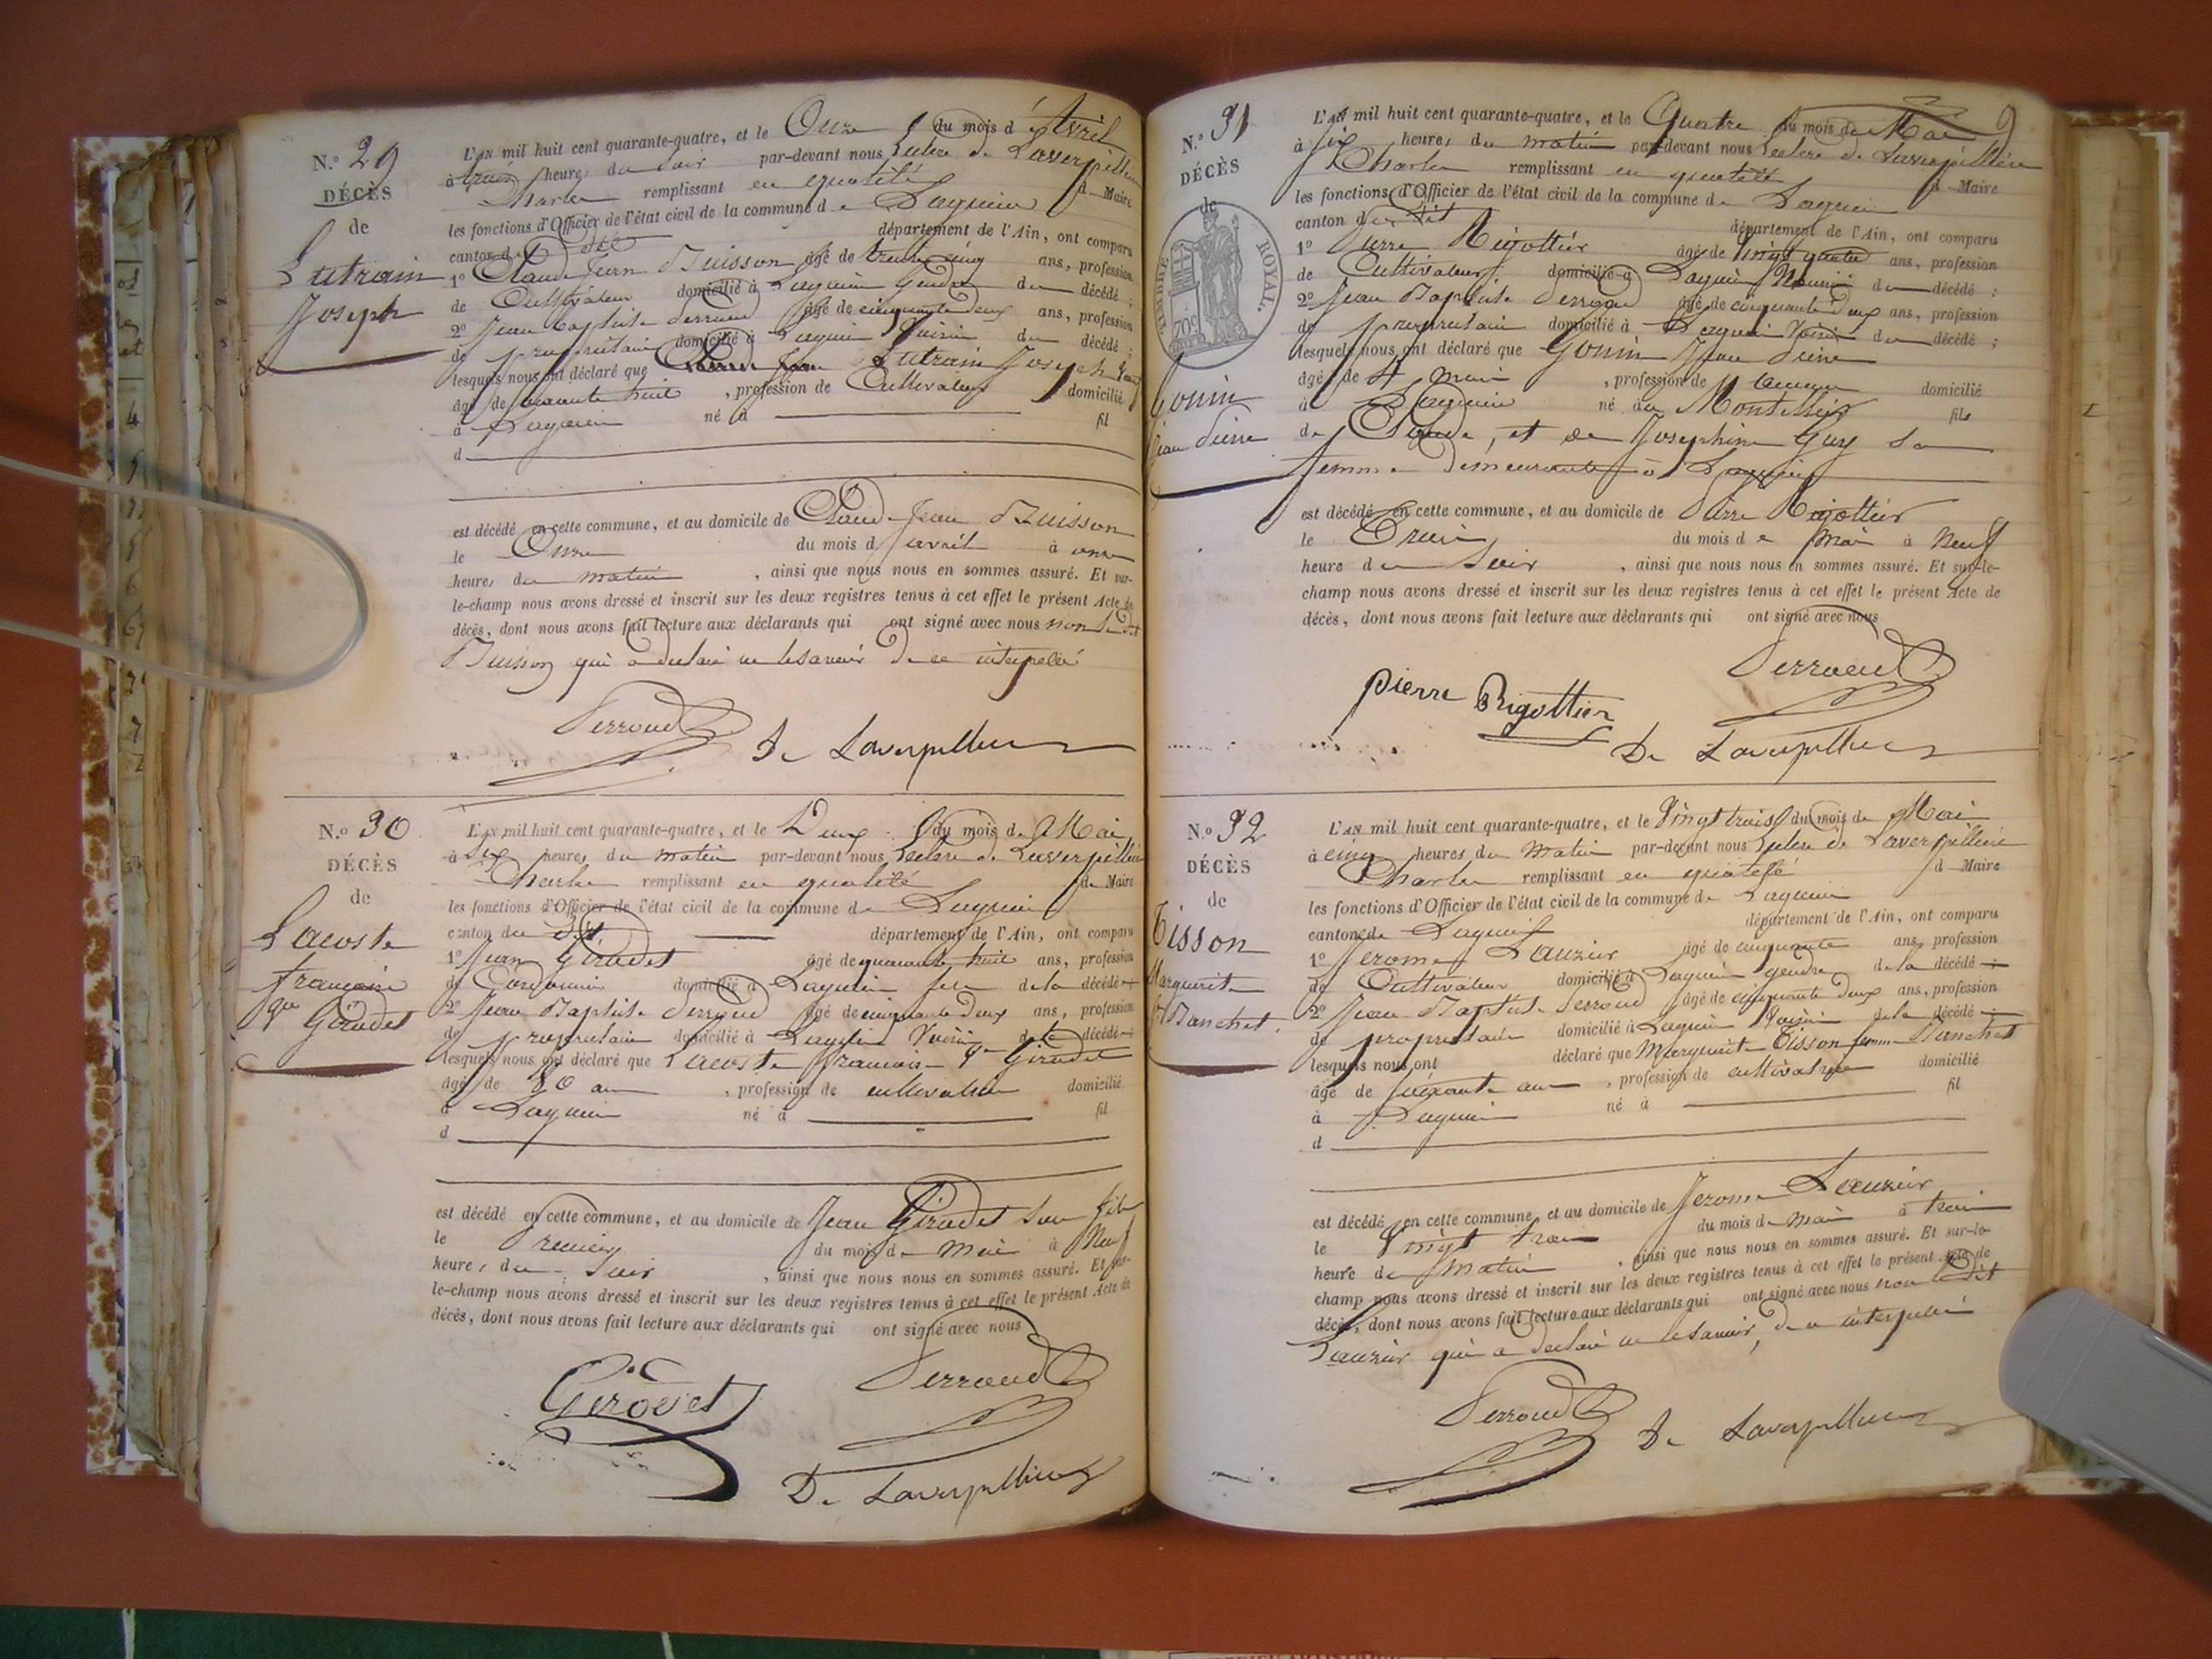 N.o 29
DÉCÈS
de
Lutrain
Joseph
L'AN mil huit cent quarante-quatre, et le Onze du mois d'Avril
à trois heures du soir par-devant nous Leclerc de Laverpillière
Charles remplissant en qualité de Maire
les fonctions d'Officier de l'état civil de la commune de Lagnieu
canton du dit département de l'Ain, ont comparu
1o Claude Jean Buisson âgé de trente cinq ans, profession
de Cultivateur domicilié à Lagnieu Gendre du décédé ;
2o Jean Baptiste Perroud âgé de cinquante deux ans, profession
de propriétaire domicilié à Lagnieu Voisin du décédé ;
lesquels nous ont déclaré que Lutrain Joseph
âgé de huit , profession de Cultivateur domicilié
à Lagnieu né à fil
d
est décédé en cette commune, et au domicile de Claude Jean Buisson
le Onze du mois d avril à onze
heures du matin , ainsi que nous nous en sommes assuré. Et sur-
le-champ nous avons dressé et inscrit sur les deux registres tenus à cet effet le présent Acte de
décès, dont nous avons fait lecture aux déclarants qui ont signé avec nous non le dit
Buisson qui a declaré ne le savoir de ce interpellé
Perroud
De Laverpilliere
N.o 30
DÉCÈS
de
Lacoste
françoise
ve Giroudet
L'AN mil huit cent quarante-quatre, et le Deux du mois de Mai
à Six heures du matin par-devant nous Leclerc de Laverpillière
Charles remplissant en qualité de Maire
les fonctions d'Officier de l'état civil de la commune de Lagnieu
canton du dit département de l'Ain, ont comparu
1o Jean Giroudet âgé de quarante huit ans, profession
de Cordonnier domicilié à Lagnieu fils de la décédé
2o Jean Baptiste Perroud âgé de cinquante deux ans, profession
de propriétaire domicilié à Lagnieu Voisin de la décédé
lesquels nous ont déclaré que Lacoste françoise ve Giroudet
âgé de 80 ans , profession de cultivatrice domicilié
à Lagnieu né à fil
d
est décédé en cette commune, et au domicile de Jean Giroudet son fils
le Premier du mois de Mai à Neuf
heures du Soir , ainsi que nous nous en sommes assuré. Et sur-
le-champ nous avons dressé et inscrit sur les deux registres tenus à cet effet le présent Acte de
décès, dont nous avons fait lecture aux déclarants qui ont signé avec nous
Giroudet
Perroud
De Laverpilliere
9
N.o 31
DÉCÈS
de
TIMBRE ROYAL.
70c
Gonin
Jean Pierre
L'AN mil huit cent quarante-quatre, et le Quatre du mois de Mai
à six heures du matin par-devant nous Leclerc de Laverpillière
Charles remplissant en qualité de Maire
les fonctions d'Officier de l'état civil de la commune de Lagnieu
canton du dit département de l'Ain, ont comparu
1o Pierre Rigottier âgé de vingt quatre ans, profession
de Cultivateur domicilié à Lagnieu du décédé ;
2o Jean Baptiste Perroud âgé de cinquante deux ans, profession
de propriétaire domicilié à Lagnieu Voisin du décédé ;
lesquels nous ont déclaré que Gonin Jean Pierre
âgé de 4 mois , profession de domicilié
à Lagnieu né au fils
de Claude, et de Josephine Guy sa
femme demeurants à Lagnieu
est décédé en cette commune, et au domicile de Pierre Rigottier
le Trois du mois de Mai à Neuf
heure du Soir , ainsi que nous nous en sommes assuré. Et sur-le-
champ nous avons dressé et inscrit sur les deux registres tenus à cet effet le présent Acte de
décès, dont nous avons fait lecture aux déclarants qui ont signé avec nous
Perroud
pierre Rigottier
De Laverpilliere
N.o 32
DÉCÈS
de
Tisson
Marguerite
fe Banchet
L'AN mil huit cent quarante-quatre, et le Vingt trois du mois de Mai
à cinq heures du Matin par-devant nous Leclerc de Laverpillière
Charles remplissant en qualité de Maire
les fonctions d'Officier de l'état civil de la commune de Lagnieu
canton de Lagnieu département de l'Ain, ont comparu
1o Jerome Lauzier âgé de cinquante ans, profession
de Cultivateur domicilié à Lagnieu gendre de la décédé
2o Jean Baptiste Perroud âgé de cinquante deux ans, profession
de propriétaire domicilié à Lagnieu Voisin de la décédé
lesquels nous ont déclaré que Marguerite Tisson femme Banchet
âgé de soixante ans , profession de cultivatrice domicilié
à Lagnieu né à fil
d
est décédé en cette commune, et au domicile de Jerome Lauzier
le Vingt trois du mois de Mai à trois
heure du matin , ainsi que nous nous en sommes assuré. Et sur-le-
champ nous avons dressé et inscrit sur les deux registres tenus à cet effet le présent Acte de
décès, dont nous avons fait lecture aux déclarants qui ont signé avec nous non le dit
Lauzier qui a declaré ne le savoir, de ce interpellé
Perroud
De Laverpilliere